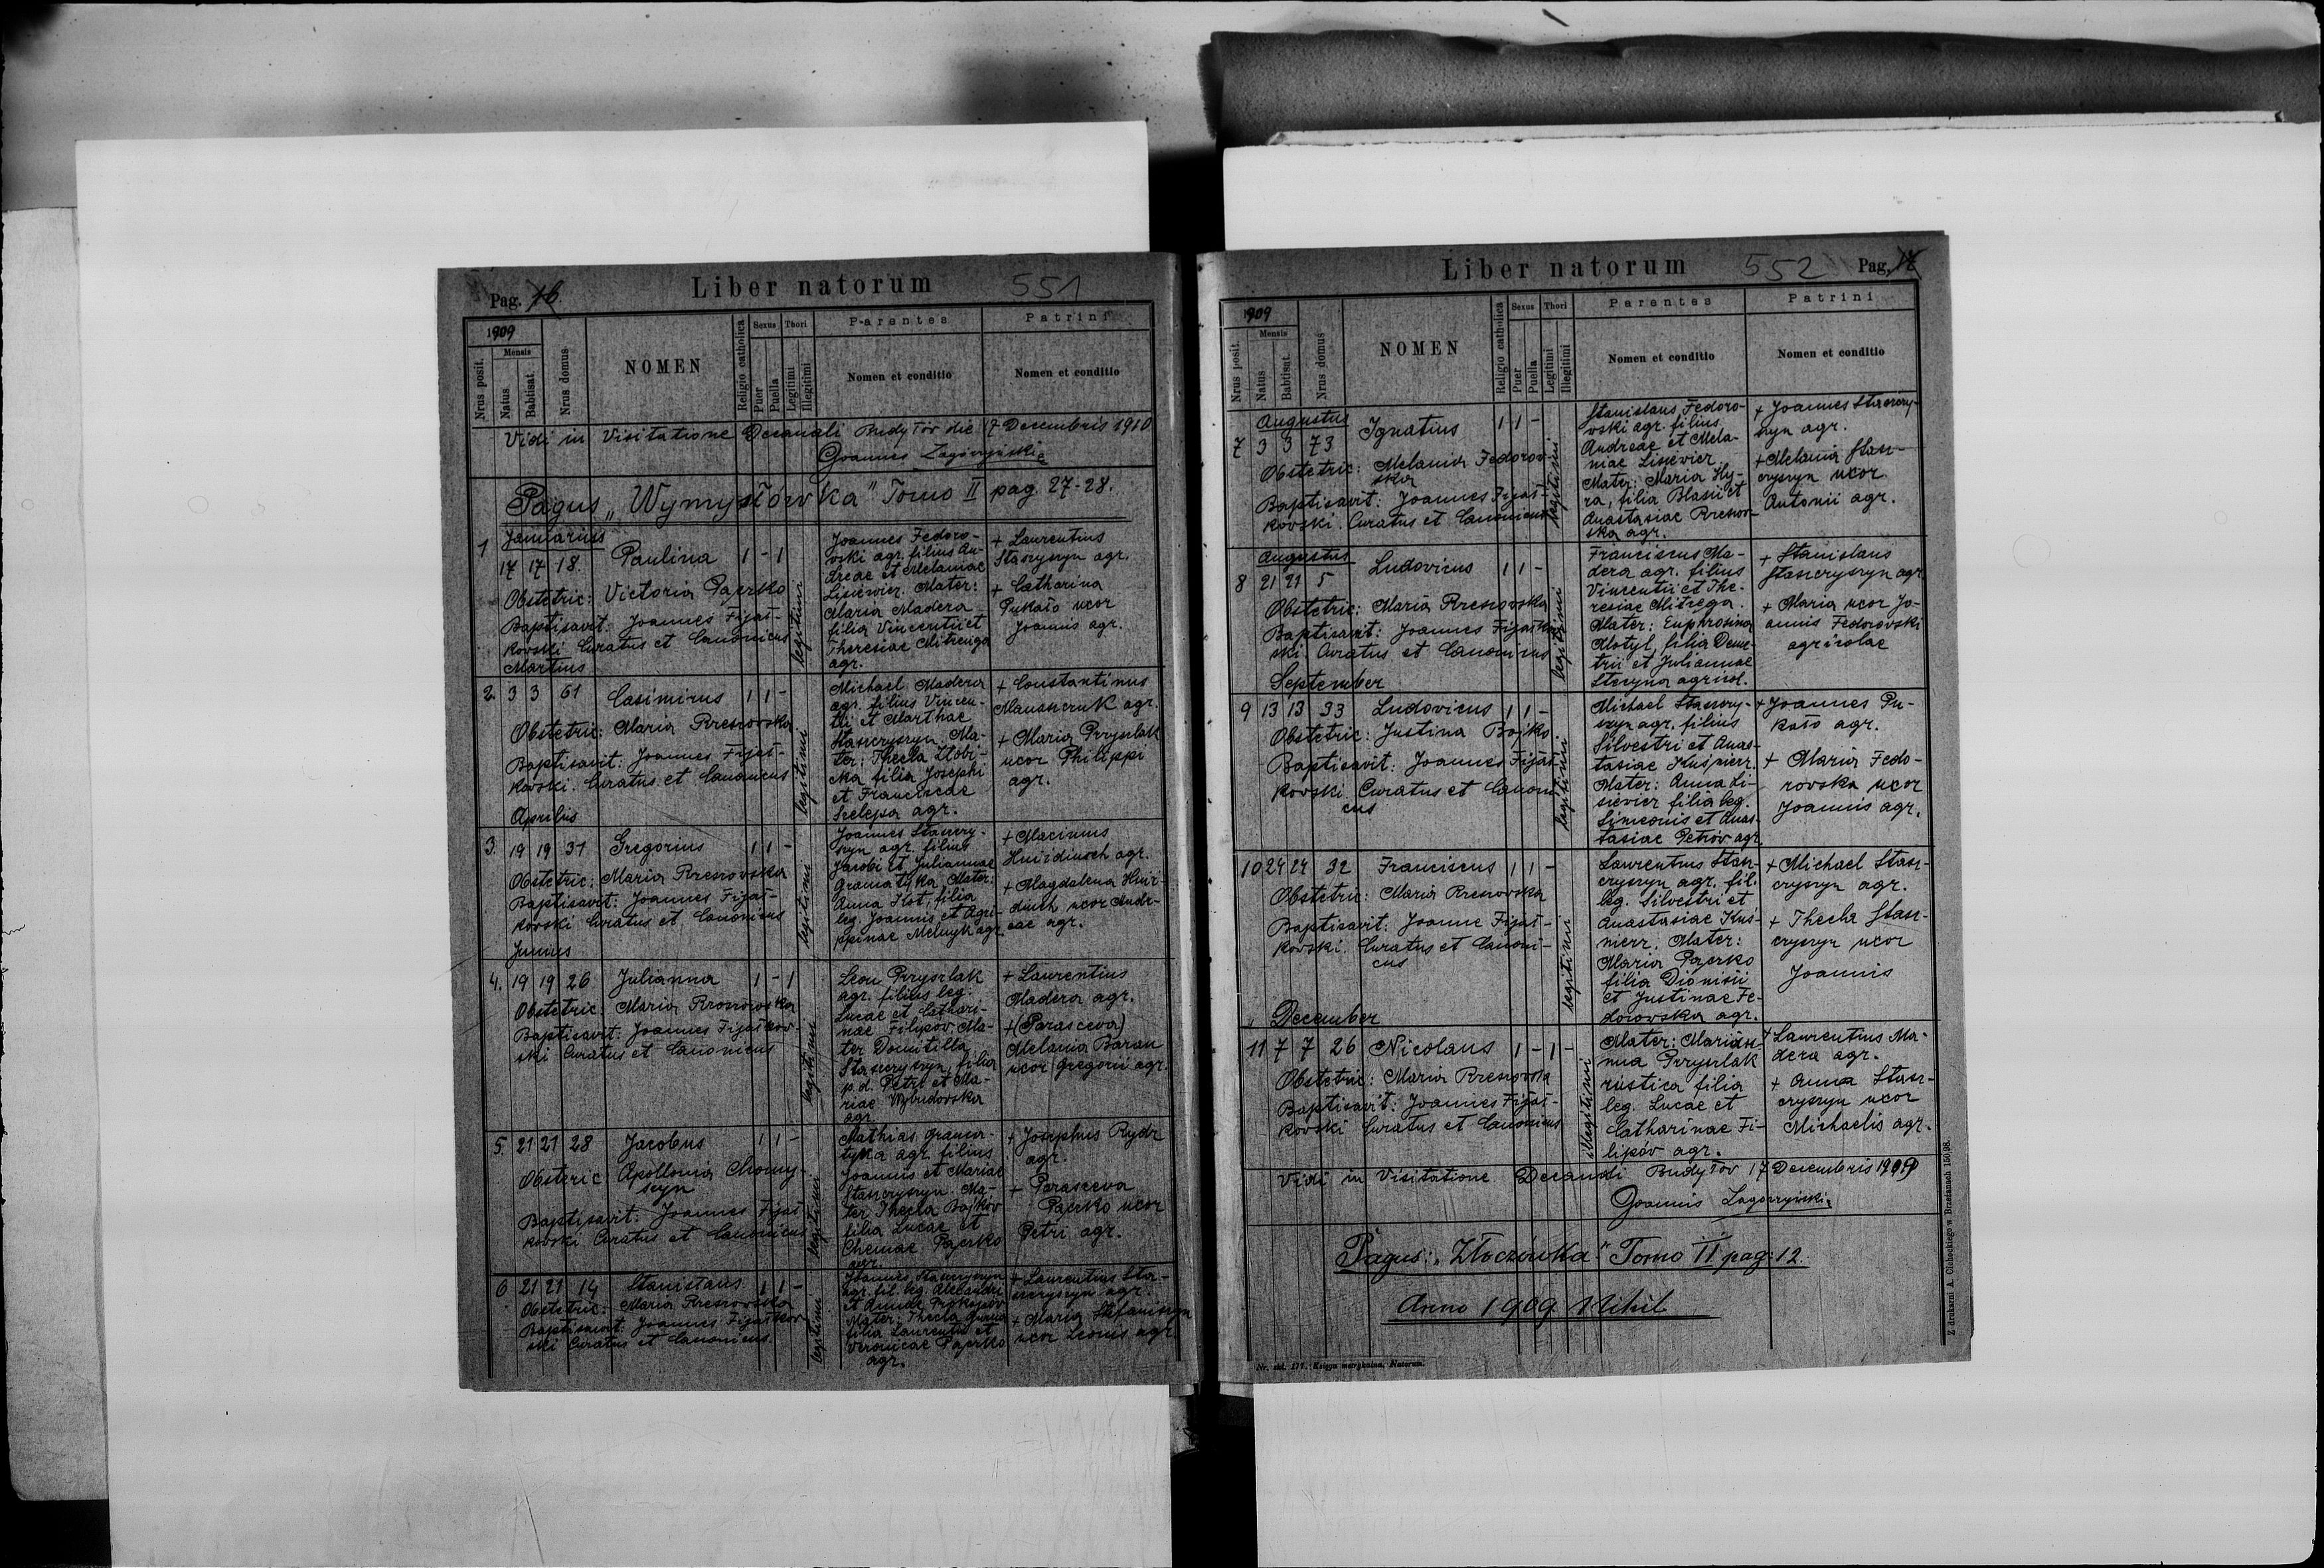 Pag. 16
Liber natorum
551
1909
Nrus posit.
Mensis
Natus
Babtisat.
Nrus domus
NOMEN
Religio catholica
Sexus
Puer
Puella
Thori
Legitimi
Illegitimi
Parentes
Nomen et conditio
Patrini
Nomen et conditio
Vidi in Visitatione Decanali Budyłów die 17 Decembris 1910
Joannes Zagórzyński
Pagus „Wymysłówka" Tomo II pag. 27-28.
Januarius
1 17 17 18. Paulina 1 - 1
Obstetric: Victoria Pajerko
Baptisavit: Joannes Fijał-
kovski Curatus et Canonicus
legitimi
Joannes Fedoro-
vski agr. filius An-
dreae et Melaniae
Lisievicz. Mater:
Maria Madera
filia Vincentii et
Theresiae Mitrenga
agr.
+ Laurentius
Stasczyszyn agr.
+ Catharina
Pukało uxor
Joannis agr.
Martius
2 3 3 61 Casimirus 1 1 -
Obstetric: Maria Rzesovska
Baptisavit: Joannes Fijał-
kovski. Curatus et Canonicus
legitimi
Michael Madera
agr. filius Vincen-
tii et Marthae
Stasczyszyn. Ma-
ter: Thecla
filia Josephi
et Franciscae
Szelepa agr.
+ Constantinus
Manasczuk agr.
+ Maria Przyszlak
uxor Philippi
agr.
Aprilus
3. 19 19 31 Gregorius 1 1 -
Obstetric: Maria Rzesovska
Baptisavit: Joannes Fijał-
kovski Curatus et Canonicus
legitimi
Joannes Stasczy-
szyn agr. filius
Jacobi et Juliannae
Gramatyka. Mater:
Anna Kot, filia
leg. Joannis et Agri-
ppinae Melnyk agr.
+ Maximus
Hnidiuch agr.
+ Magdalena Hni-
diuch uxor Andr-
eae agr.
Junius
4. 19 19 26 Julianna 1 - 1
Obstetric: Maria Rzesovska
Baptisavit: Joannes Fijałkov-
ski Curatus et Canonicus
legitimi
Leon Przyszlak
agr. filius leg.
Lucae et Cathari-
nae Filipov. Ma-
ter Domitilla
Stasczyszyn, filia
p.d. Petri et Ma-
riae Wybudovska
agr.
+ Laurentius
Madera agr.
+ (Parasceva)
Melania Baran
uxor Gregorii agr.
5. 21 21 28 Jacobus 1 1 -
Obsteric: Apollonia Chomy-
szyn
Baptisavit: Joannes Fijał-
kovski Curatus et Canonicus
legitimi
Mathias Grama-
tyka agr. filius
Joannis et Mariae
Stasczyszyn. Ma-
ter Thecla Bojkov
filia Lucae et
Pajerko
agr.
+ Josephus Rydz
agr.
+ Parasceva
Pajerko uxor
Petri agr.
6 21 21 14 Stanislaus 1 1 -
Obstetric: Maria Rzesovska
Baptisavit: Joannes Fijałkov-
ski Curatus et Canonicus
legitimi
Joannes Stasczyszyn
agr. fil. leg. Alexandri
et Annae Prokopów
Mater: Thecla
filia Laurentii et
Veronicae Pajerko
agr.
+ Laurentius Sta-
sczyszyn agr.
+ Maria Stefaniszyn
uxor Leonis agr.
Liber natorum
552
Pag. 17
1909
Nrus posit.
Mensis
Natus
Babtisat.
Nrus domus
NOMEN
Religio catholica
Sexus
Puer
Puella
Thori
Legitimi
Illegitimi
Parentes
Nomen et conditio
Patrini
Nomen et conditio
Augustus
7 3 3 73 Ignatius 1 1 -
Obstetric: Melania Fedorov-
ska
Baptisavit: Joannes Fijał-
kovski. Curatus et Canonicus
legitimi
Stanislaus Fedoro-
vski agr. filius
Andreae et Mela-
niae Lisievicz.
Mater: Maria Hy-
ra, filia Blasii et
Anastasiae Rzesov-
ska agr.
+ Joannes Stasczy-
szyn agr.
+ Melania Stas-
czyszyn uxor
Antonii agr.
Augustus
8 21 21 5 Ludovicus 1 1 -
Obstetric: Maria Rzesovska
Baptisavit: Joannes Fijałkov-
ski. Curatus et Canonicus
legitimi
Franciscus Ma-
dera agr. filius
Vincentii et The-
resiae Mitrega.
Mater: Euphrosina
Motyl, filia Deme-
trii et Juliannae
Steryna agricol.
+ Stanislaus
Stasczyszyn agr.
+ Maria uxor Jo-
annis Fedorovski
agricolae
September
9 13 13 33 Ludovicus 1 1 -
Obstetric: Justina Bojko
Baptisavit: Joannes Fijał-
kovski Curatus et Canoni-
cus
legitimi
Michael Stasczy-
szyn agr. filius
Silvestri et Anas-
tasiae Kuśnierz.
Mater: Anna Li-
sievicz filia leg.
Simeonis et Anas-
tasiae Petróv agr.
+ Joannes Pu-
kało agr.
+ Maria Fedo-
rovska uxor
Joannis agr.
10 24 24 32 Franciscus 1 1 -
Obstetric: Maria Rzesovska
Baptisavit: Joanne Fijał-
kovski. Curatus et Canoni-
cus
legitimi
Laurentius Stas-
czyszyn agr. fil.
leg. Silvestri et
Anastasiae Kuś-
nierz. Mater:
Maria Pajerko
filia Dionisii
et Justinae Fe-
dorovska agr.
+ Michael Stas-
czyszyn agr.
+ Thecla Stas-
czyszyn uxor
Joannis
December
11 7 7 26 Nicolaus 1 - 1 -
Obstetric: Maria Rzesovska
Baptisavit: Joannes Fijał-
kovski Curatus et Canonicus
illegitimi
Mater: Marian-
na Przyszlak
rustica filia
leg. Lucae et
Catharinae Fi-
lipóv agr.
+ Laurentius Ma-
dera agr.
+ Anna Stas-
czyszyn uxor
Michaelis agr.
Vidi in Visitatione Decanali Budyłów 17 Decembris 1909
Joannis Zagórzyński
Pagus: „Złoczówka" Tomo II pag: 12.
Anno 1909 Nihil
Nr. skł. 177. Księga metrykalna. Natorum.
Z drukarni A. Głobockiego w Brzeżanach 150,98.